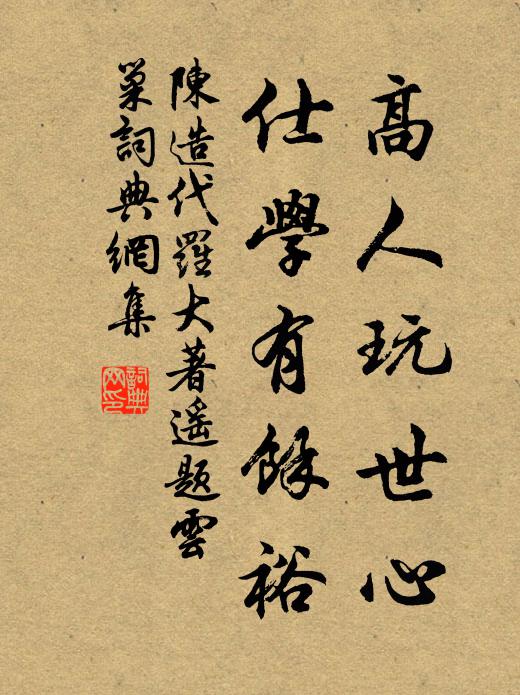 高人玩世心
仕學有餘裕
陳造代羅大著遥題雲
巢詞典網集
詞典网印